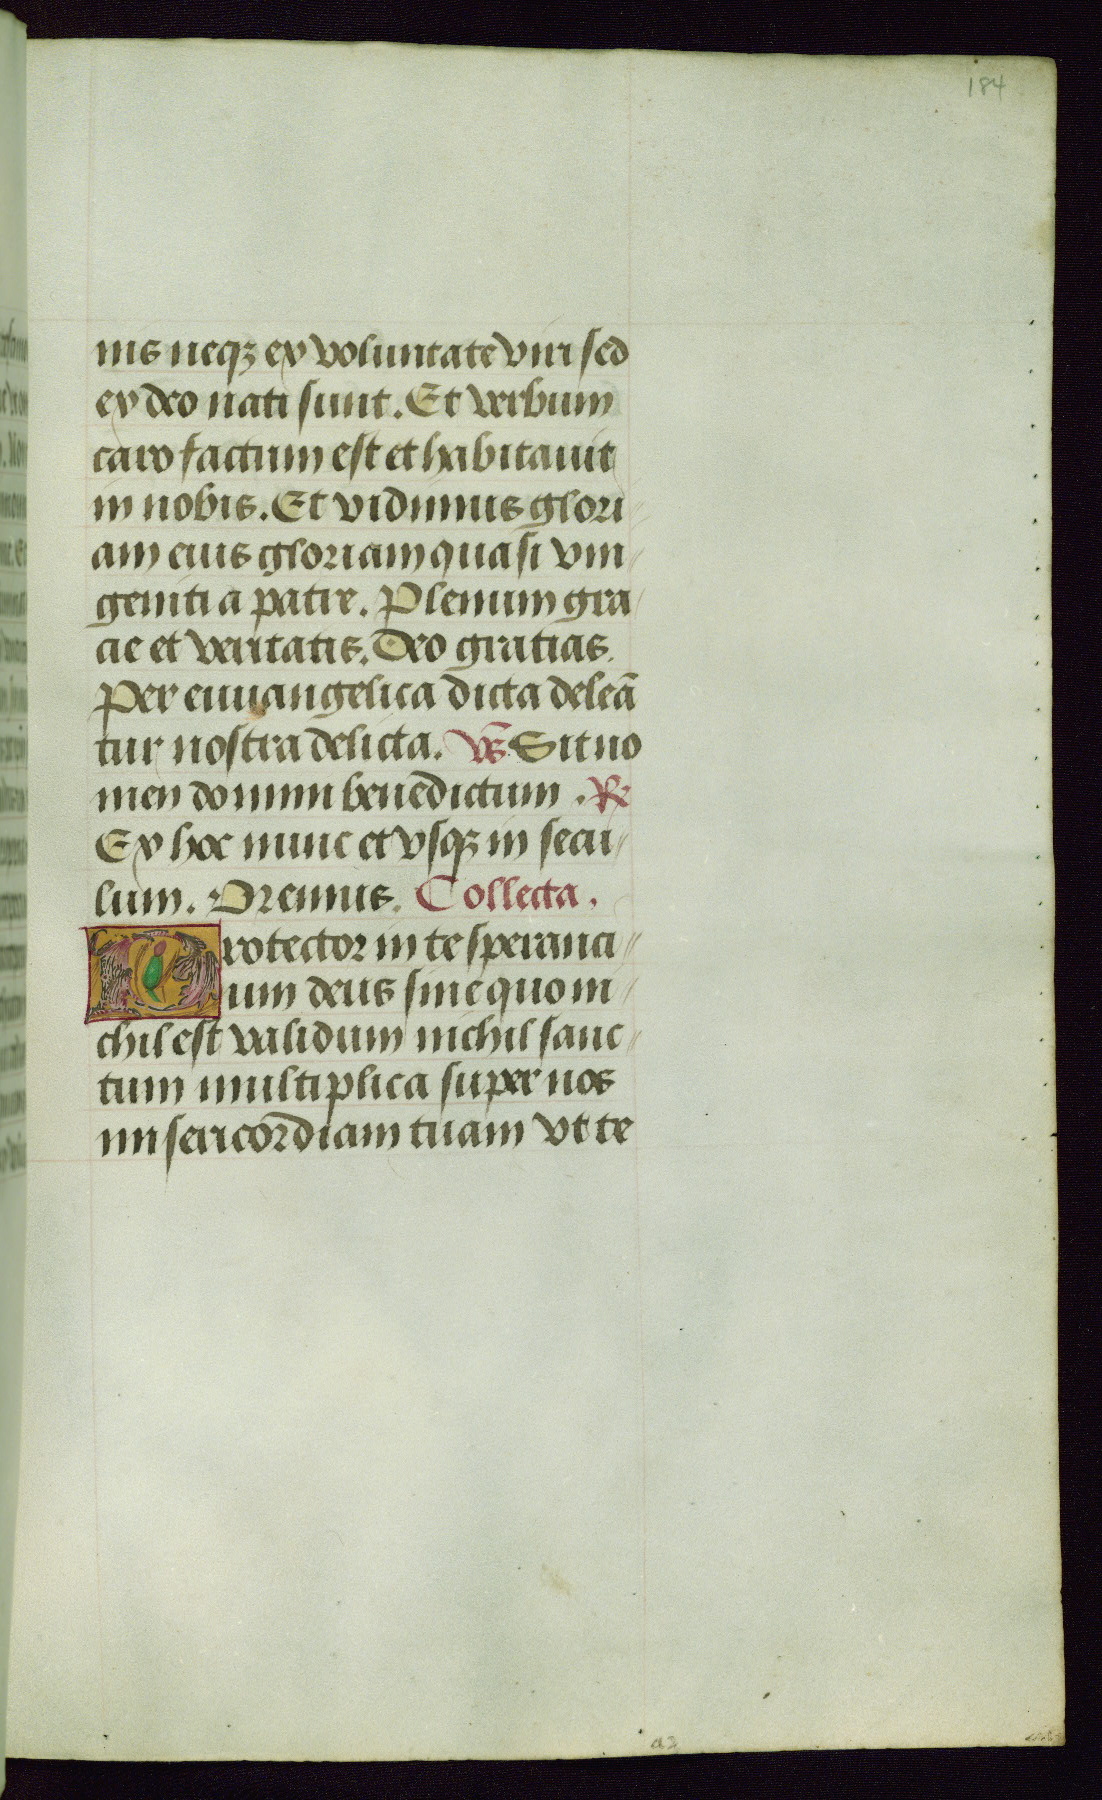 184
nis neqꝫ ex voluntate viri sed
ex deo nati sunt. Et verbum
caro factum est et habitauit
in nobis. Et vidimus glori
am eius gloriam quasi vni
geniti a patre. Plenum gra
cie et veritatis. Deo gratias.
Per euuangelica dicta deleā
tur nostra delicta. v̄s. Sit no
men domini benedictum. Re
Ex hoc nunc et vsqꝫ in secu
lum. Oremus. Collecta.
Protector in te speranci
um deus sine quo ni
chil est validum nichil sanc
tum multiplica super nos
misericordiam tuam vt te